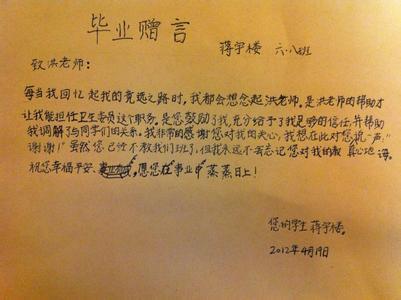 毕业赠言
蒋宇楼 六.八班
致洪老师：
每当我回忆起我的竞选之路时,我都会想念起洪老师,是洪老师的帮助才
让我能担任卫生委员这个职务。是您鼓励了我,充分给予了我足够的信任,并帮助
我调解了与同学们的关系。我非常的感谢您对我的关心,我想在此对您说一声“
谢谢!”虽然您已经不教我们班了,但我永远不会忘记您对我的教 真心地 诲。
祝您幸福平安、愿您在事业中蒸蒸日上!
您的学生 蒋宇楼。
2012年4月19日